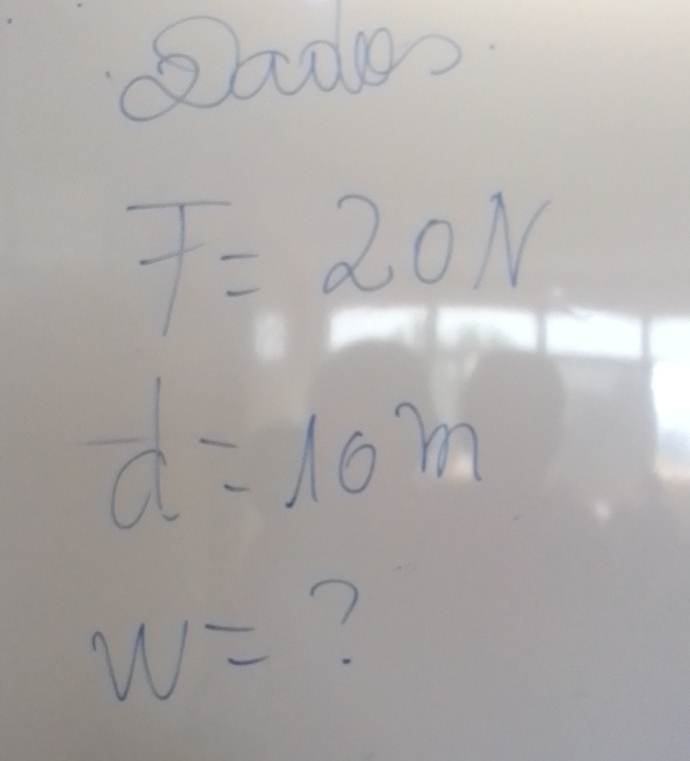 Dados
F = 20 N
d = 10 m
W = ?